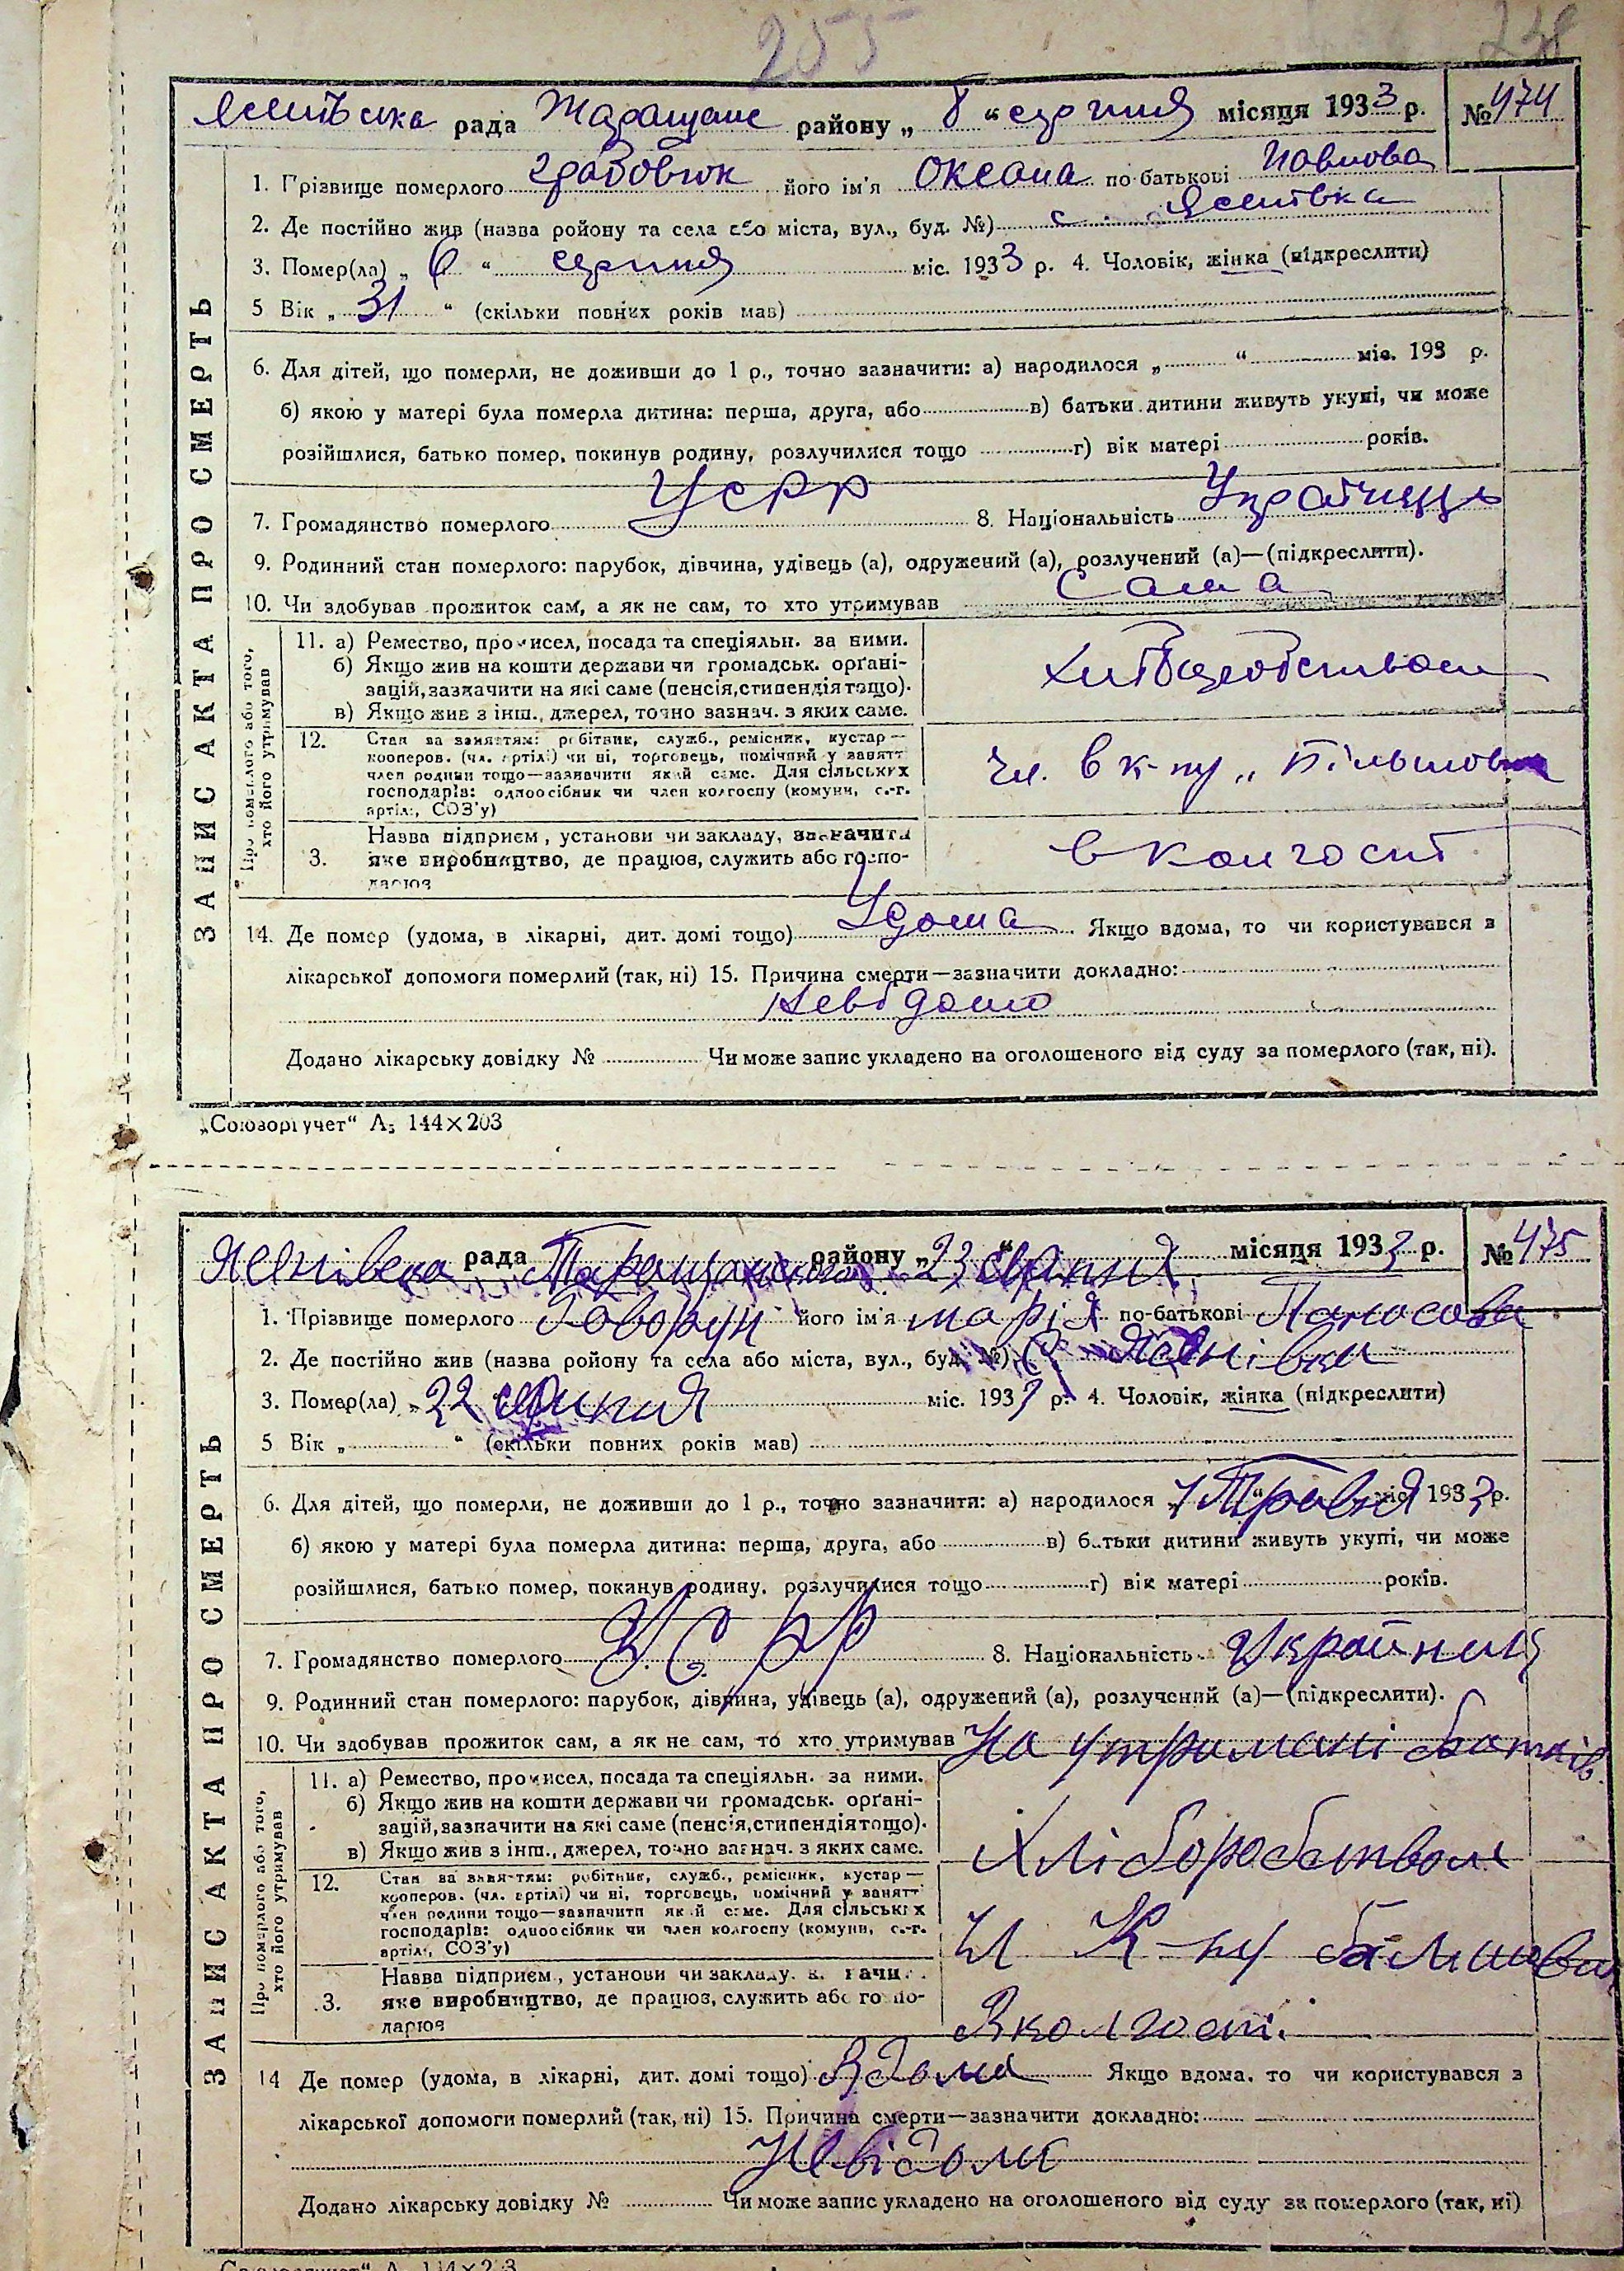 255
238
рада Таращанс району „ 8 “ серпня місяця 1933 р. № 474
1. Грізвище померлого Грабовюк його ім'я Оксана по-батькові Павлова
2. Де постійно жив (назва ройону та села або міста, вул., буд. №) с. Ясенівка
3. Помер(ла) „ 6 “ серпня міс. 1933 р. 4. Чоловік, жінка (підкреслити)
5 Вік „ 31 “ (скільки повних років мав)
6. Для дітей, що померли, не доживши до 1 р., точно зазначити: а) народилося „ “ міс. 193 р.
б) якою у матері була померла дитина: перша, друга, або в) батьки дитини живуть укупі, чи може
розійшлися, батько помер, покинув родину, розлучилися тощо г) вік матері років.
7. Громадянство померлого УСРР 8. Національність
9. Родинний стан померлого: парубок, дівчина, удівець (а), одружений (а), розлучений (а)—(підкреслити).
10. Чи здобував прожиток сам, а як не сам, то хто утримував Сама
ЗАПИС АКТА ПРО СМЕРТЬ
Про померлого або того,
хто його утримував
11. а) Ремество, промисел, посада та спеціяльн. за ними.
б) Якщо жив на кошти держави чи громадськ. орґані-
зацій, зазначити на які саме (пенсія, стипендія тощо).
в) Якщо жив з інш., джерел, точно зазнач. з яких саме.
Хліборобством
12. Стан за заняттям: робітник, служб., ремісник, кустар—
кооперов. (чл. артілі) чи ні, торговець, помічний у занятт
член родини тощо—зазначити який саме. Для сільських
господарів: одноосібник чи член колгоспу (комуни, с.-г.
артілі, СОЗ'у)
чл. в к-пу „
Назва підприєм, установи чи закладу, зазначити
3. яке виробництво, де працює, служить або госпо-
дарює
в колгоспі
14. Де помер (удома, в лікарні, дит. домі тощо) Удома Якщо вдома, то чи користувався з
лікарської допомоги померлий (так, ні) 15. Причина смерти—зазначити докладно:
невідомо
Додано лікарську довідку № Чи може запис укладено на оголошеного від суду за померлого (так, ні).
„Союзоргучет“ А5 144×203
рада Таращанського району „23 серпня місяця 1933 р. № 475
1. Прізвище померлого Говорун його ім'я марія по-батькові Панасова
2. Де постійно жив (назва ройону та села або міста, вул., буд. №) С. Ясенівка
3. Помер(ла) „22 серпня міс. 1933 р. 4. Чоловік, жінка (підкреслити)
5 Вік „ “ (скільки повних років мав)
6. Для дітей, що померли, не доживши до 1 р., точно зазначити: а) народилося „ Травня міс. 1933 р.
б) якою у матері була померла дитина: перша, друга, або в) батьки дитини живуть укупі, чи може
розійшлися, батько помер, покинув родину, розлучилися тощо г) вік матері років.
7. Громадянство померлого У.С.РР 8. Національність
9. Родинний стан померлого: парубок, дівчина, удівець (а), одружений (а), розлучений (а)—(підкреслити).
10. Чи здобував прожиток сам, а як не сам, то хто утримував На утримані батьків.
ЗАПИС АКТА ПРО СМЕРТЬ
Про померлого або того,
хто його утримував
11. а) Ремество, промисел, посада та спеціяльн. за ними.
б) Якщо жив на кошти держави чи громадськ. орґані-
зацій, зазначити на які саме (пенсія, стипендія тощо).
в) Якщо жив з інш., джерел, точно зазнач. з яких саме.
Хліборобством
12. Стан за заняттям: робітник, служб., ремісник, кустар—
кооперов. (чл. артілі) чи ні, торговець, помічний у занятт
член родини тощо—зазначити який саме. Для сільських
господарів: одноосібник чи член колгоспу (комуни, с.-г.
артілі, СОЗ'у)
К-пу
Назва підприєм, установи чи закладу,
3. яке виробництво, де працює, служить або госпо-
дарює
Вколгоспі.
14 Де помер (удома, в лікарні, дит. домі тощо) Вдома Якщо вдома. то чи користувався з
лікарської допомоги померлий (так, ні) 15. Причина смерти—зазначити докладно:
Невідомо
Додано лікарську довідку № Чи може запис укладено на оголошеного від суду за померлого (так, ні)